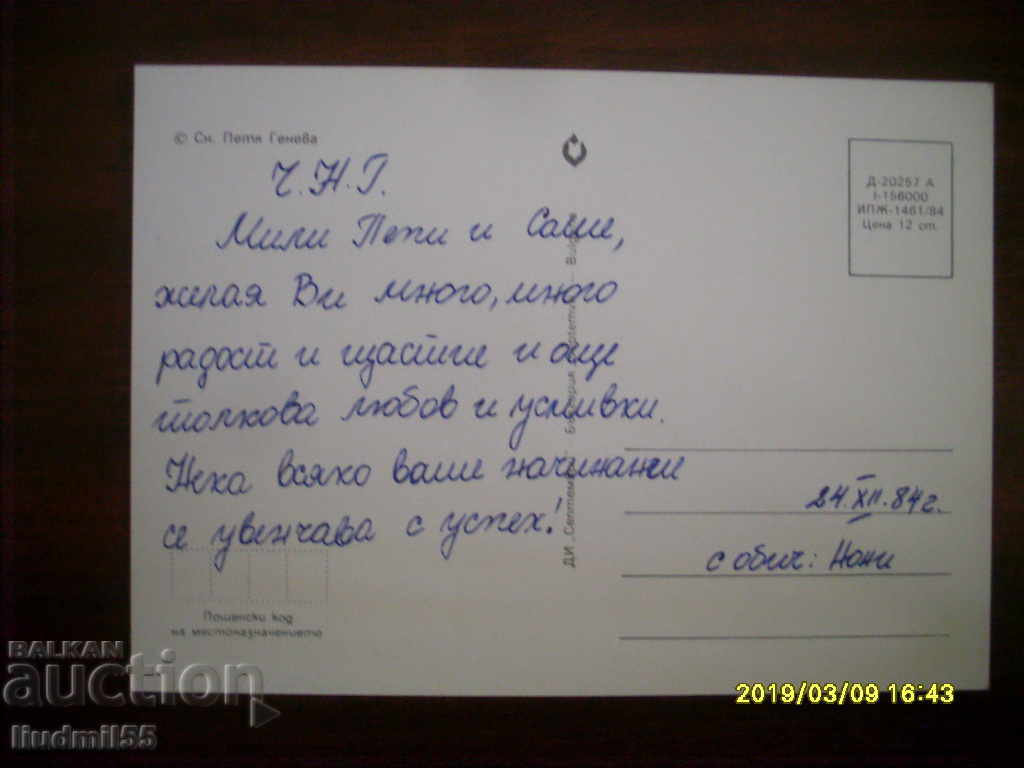 © Сн. Петя Генева
Ч.Н.Г.
Мили Пепи и Саше,
желая Ви много, много
радост и щастие и още
толкова любов и усмивки.
Нека всяко ваше начинание
се увенчава с успех!
Пощенски код
на местоназначението
ДИ „Септември"
Д-20257 А
I-156000
ИПЖ-1461/84
Цена 12 ст.
24.XII.84г.
с обич: Нони
BALKAN
auction
liudmil55
2019/03/09 16:43